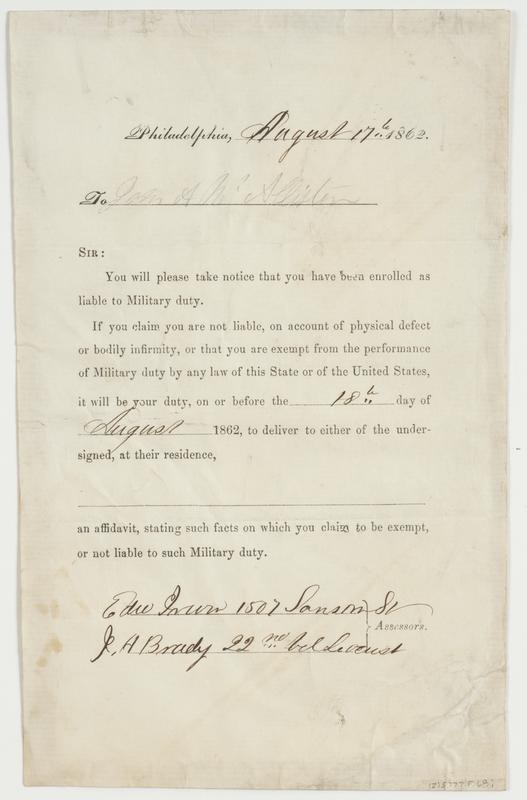 Philadelphia, August 17th 1862.
To John A McAllister
SIR:
You will please take notice that you have been enrolled as
liable to Military duty.
If you claim you are not liable, on account of physical defect
or bodily infirmity, or that you are exempt from the performance
of Military duty by any law of this State or of the United States,
it will be your duty, on or before the 18th day of
August 1862, to deliver to either of the under-
signed, at their residence,
an affidavit, stating such facts on which you claim to be exempt,
or not liable to such Military duty.
Edw Irwin 1507 Sansom St
ASSESSORS.
J. A Brady 22nd bel Locust